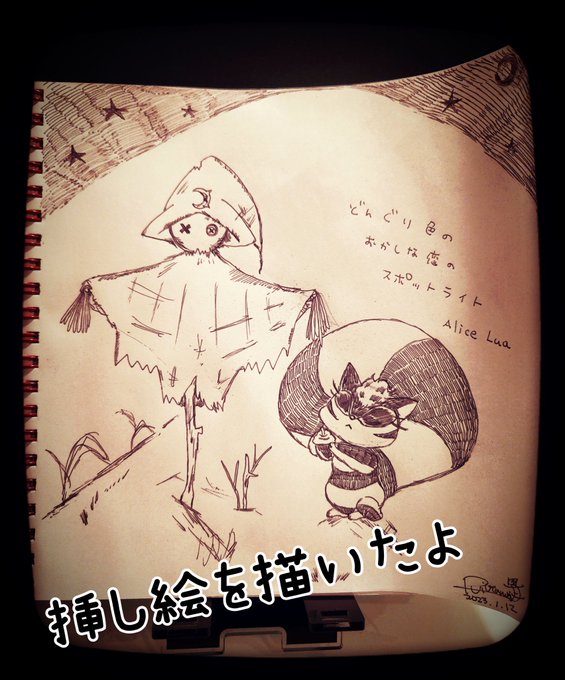 どんぐり色の
おかしな恋の
スポットライト
Alice Lua
挿し絵を描いたよ
2023.1.12